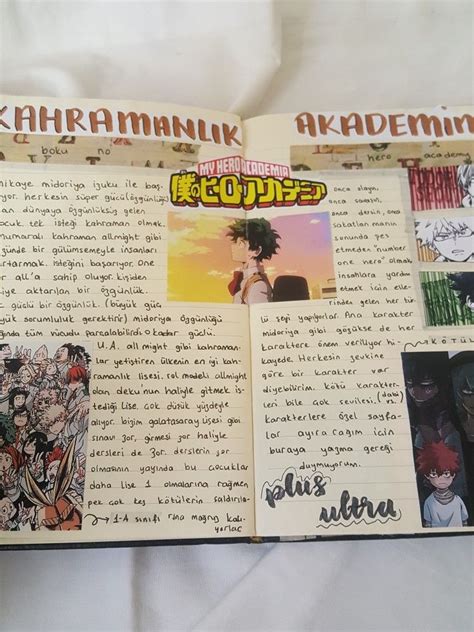 KAHRAMANLIK AKADEMİM
boku no
hero academy
MY HERO ACADEMIA
僕のヒーローアカデミア
hikaye midoriya izuku ile baş-
lıyor. herkesin süper gücü(özgünlüğü)
olan dünyaya özgünlüksüz gelen
çocuk. tek isteği kahraman olmak.
numaralı kahraman allmight gibi
yüzünde bir gülümsemeyle insanları
kurtarmak. isteğini başarıyor. One
for all'a sahip oluyor. kişiden
kişiye aktarılan bir özgünlük.
çok güçlü bir özgünlük. (büyük güç
büyük sorumluluk gerektirir) midoriya özgünlüğü
tüm vücudu parçalabilir. o kadar güçlü.
U.A. all might gibi kahraman-
lar yetiştiren ülkenin en iyi kah-
ramanlık lisesi. rol modeli allmight
olan deku'nun haliyle gitmek is-
tediği lise. çok düşük yüzdeyle
alıyor. bizim galatasaray lisesi gibi
girmesi zor haliyle
dersleri de zor. derslerin zor
olmasının yanında bu çocuklar
daha lise 1 olmalarına rağmen
pek çok kez kötülerin saldırıla-
→ 1-A sınıfı rına maruz kalı-
yorlar
onca olayın,
onca savaşın,
onca dersin, ona
sakatlanmanın
sonunda pes
etmeden "number
one hero" olmak
insanlara yardım
etmek için elle-
rinden gelen her tür-
lü şeyi yapıyorlar. Ana karakter
midoriya gibi gözükse de her
karaktere önem veriliyor hi-
kayede. Herkesin zevkine
göre bir karakter var
diyebilirim. kötü karakter-
leri bile çok sevilesi. (dabi) vs.
karakterlere özel sayfa-
lar ayıracağım için
buraya yazma gereği
duymuyorum.
KÖTÜL
plus
ultra